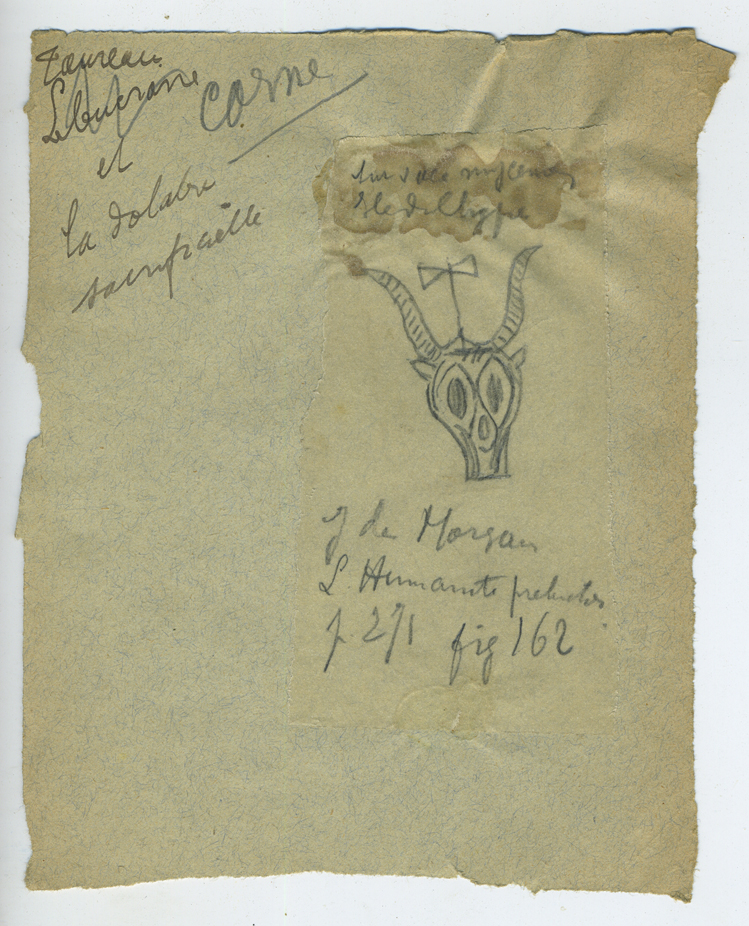 Taureau
Le bucrane
et
la dolabre
sacrificielle
Corne
Sur vase mycenien
Ile de Chypre
J de Morgan
L'Humanité prehisto.
p. 271 fig 162